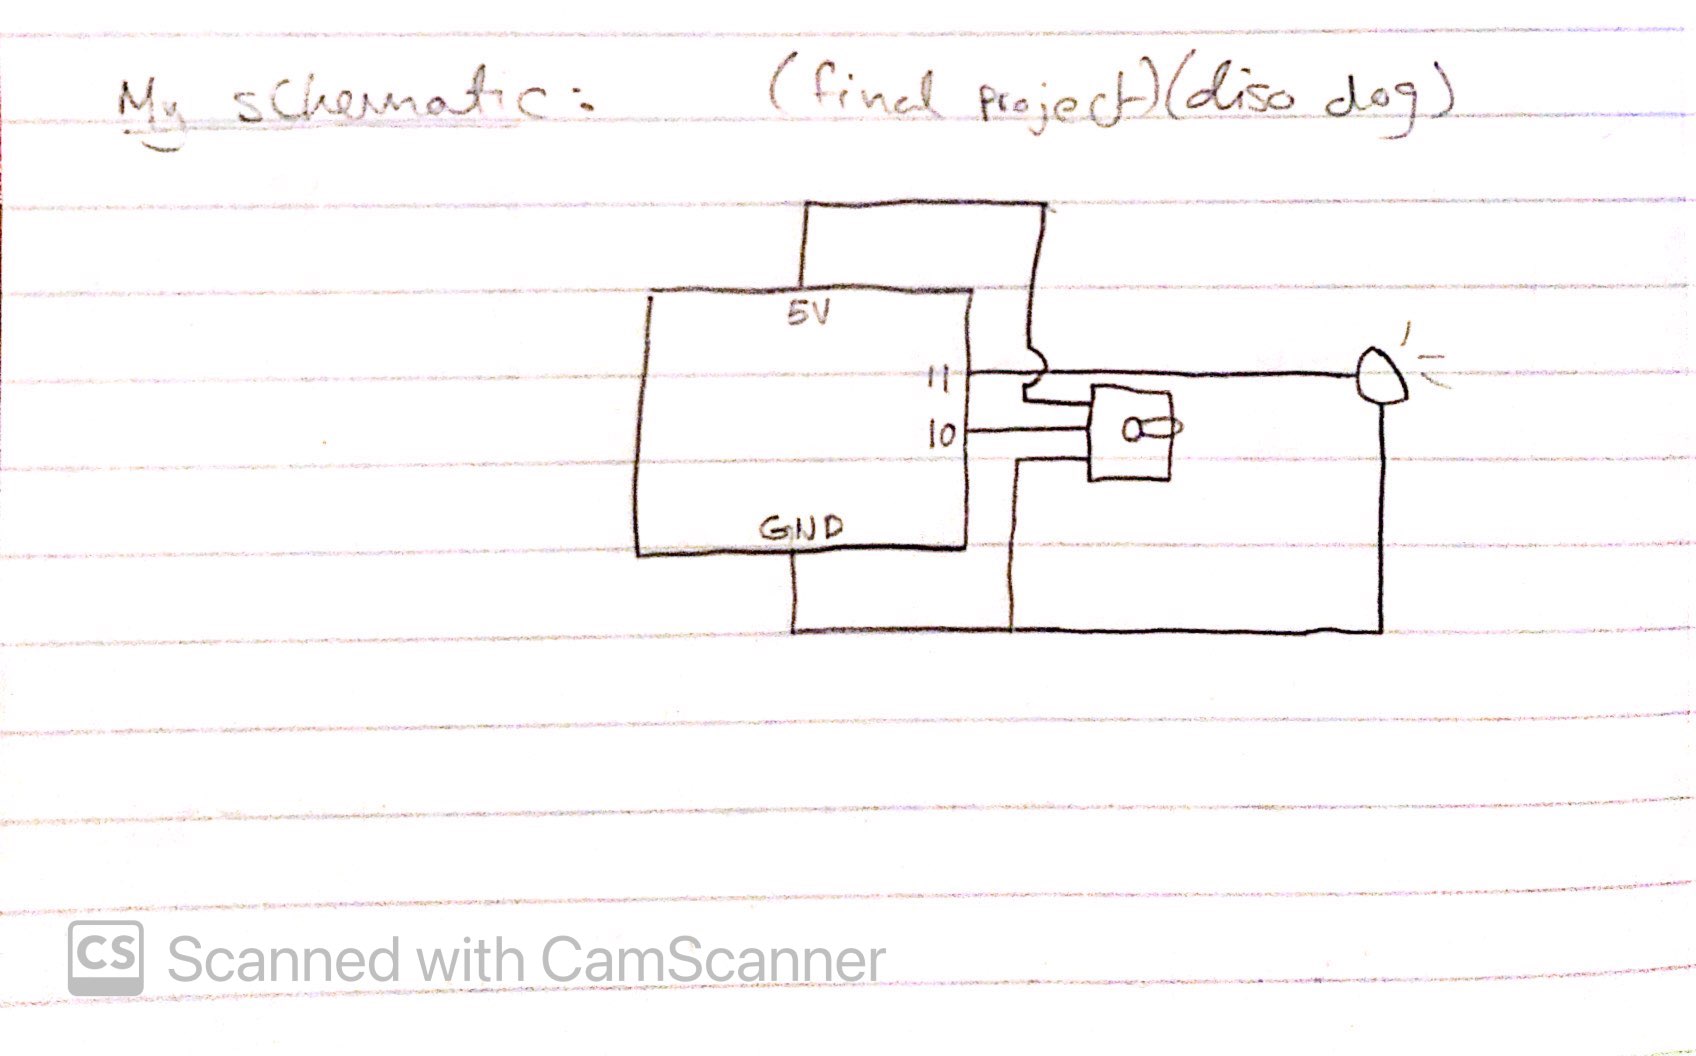 My schematic: (final project)(diso dog)
5V
11
10
GND
CS Scanned with CamScanner